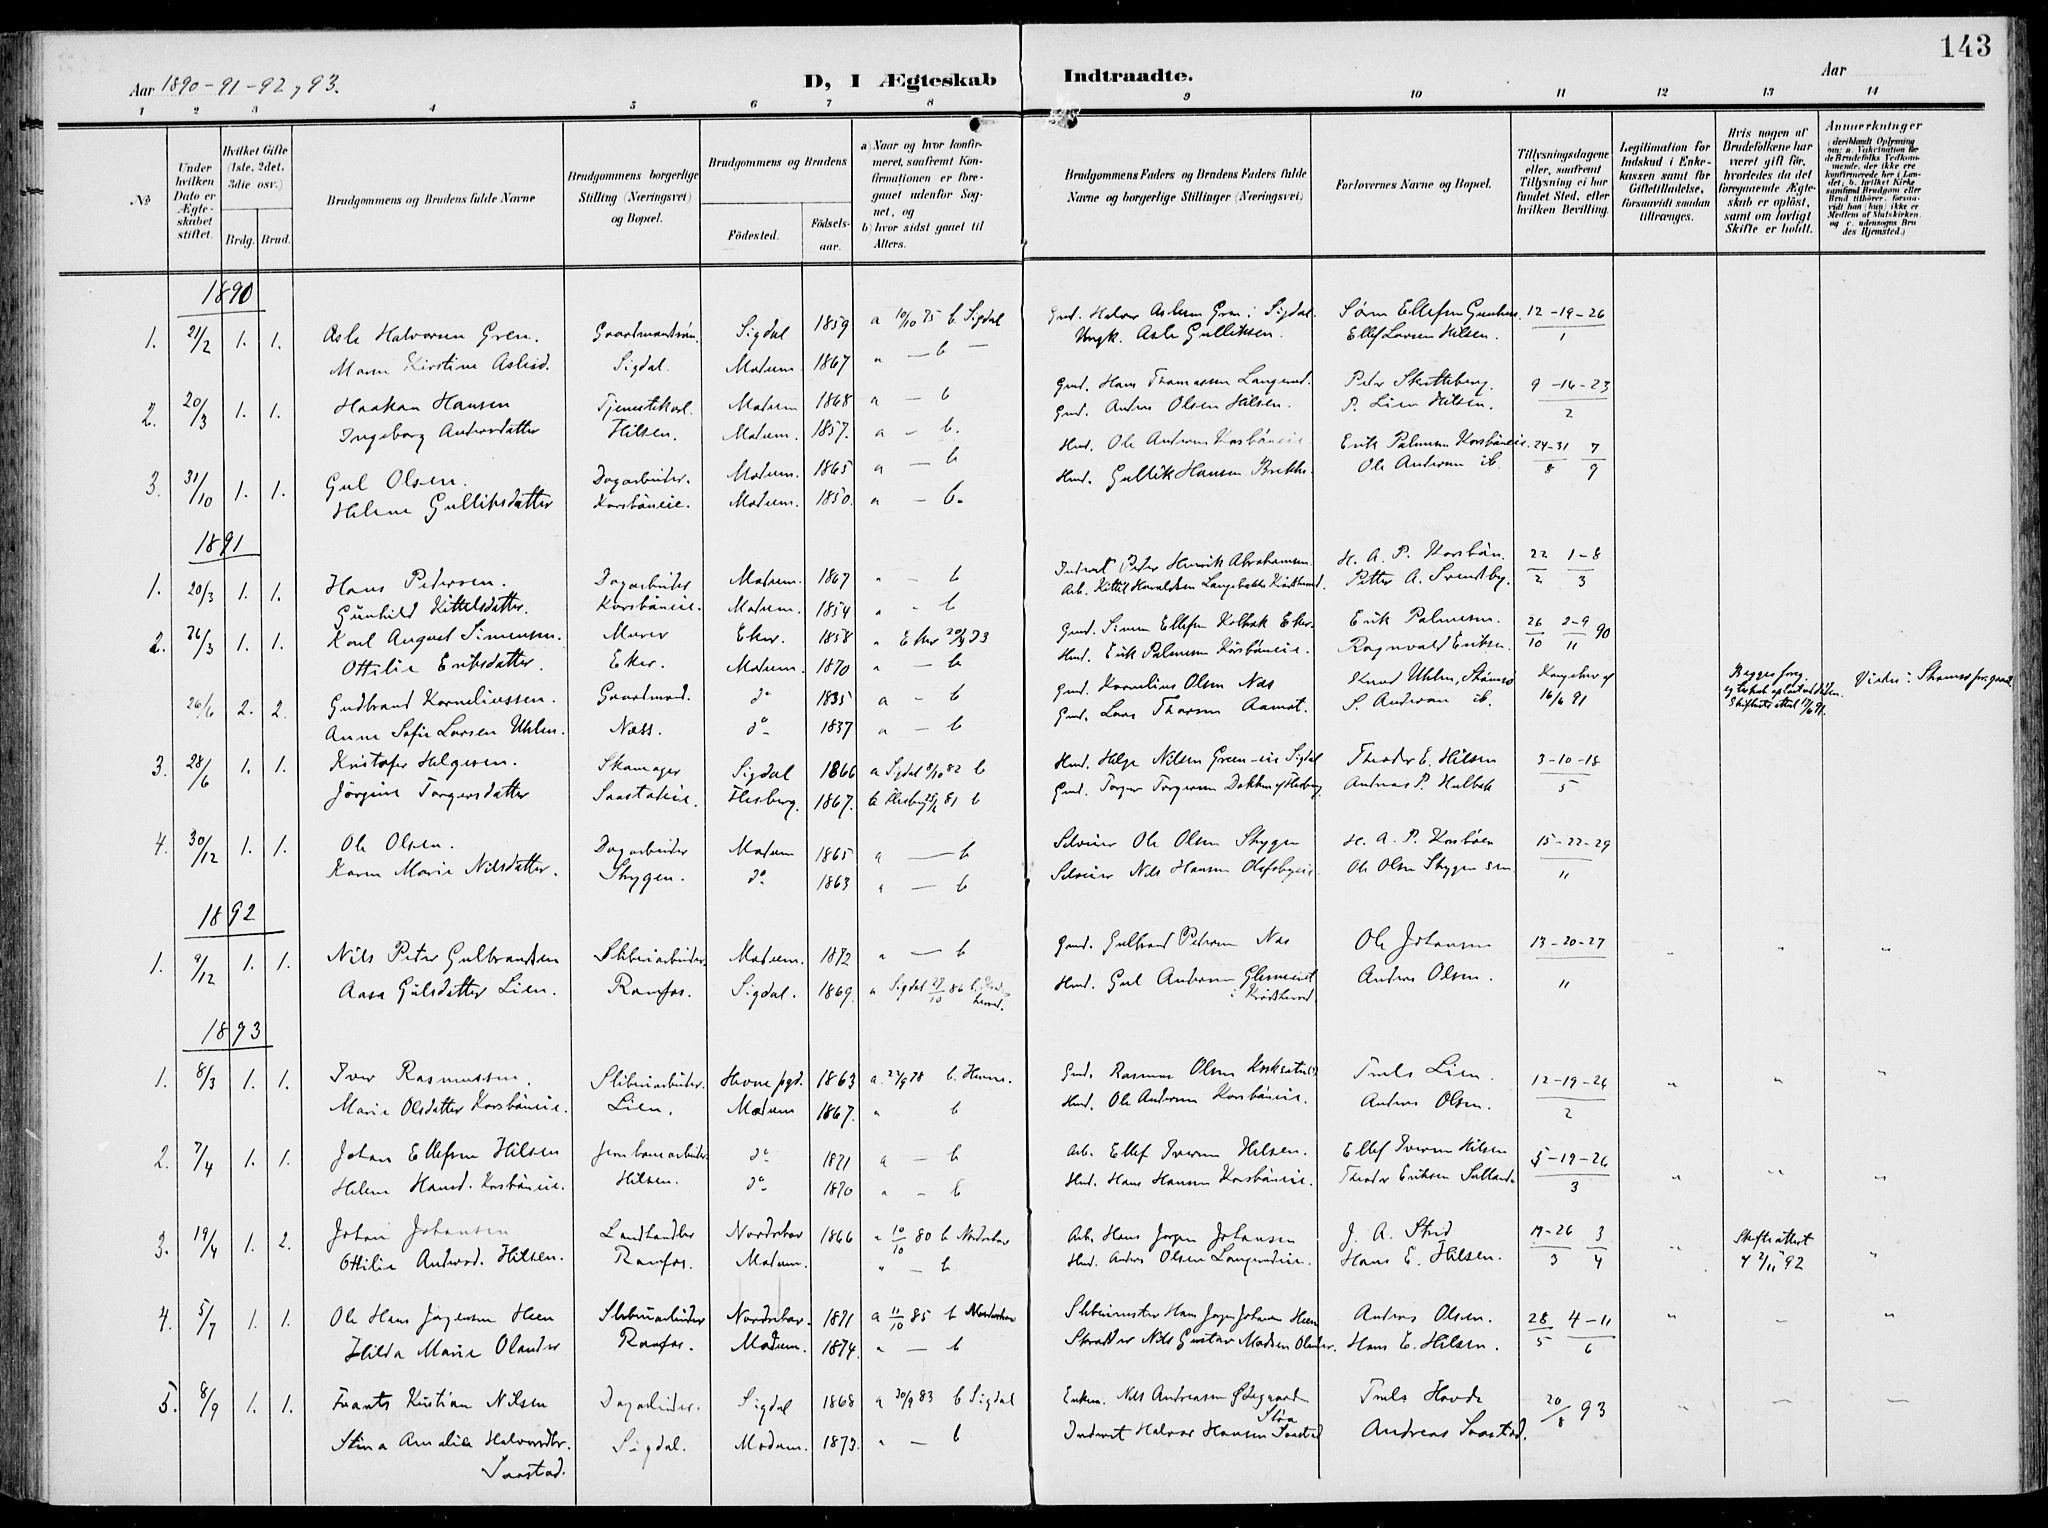 143
Aar 1890-91-92, 93.
D, I Ægteskab Indtraadte.
Aar
1 2 3 4 5 6 7 8 9 10 11 12 13 14
No
Under hvilken Dato er Ægteskabet stiftet.
Hvilket Gifte (1ste, 2det, 3die osv.)
Brdg. Brud.
Brudgommens og Brudens fulde Navne
Brudgommens borgerlige Stilling (Næringsvei) og Bopæl.
Brudgommens og Brudens
Födested. Födsels-aar.
a) Naar og hvor konfirmeret, saafremt Konfirmationen er foregaaet udenfor Sognet, og
b) hvor sidst gaaet til Alters.
Brudgommens Faders og Brudens Faders fulde Navne og borgerlige Stillinger (Næringsvei)
Forlovernes Navne og Bopæl.
Tillysningsdagene eller, saafremt Tillysning ei har fundet Sted, efter hvilken Bevilling.
Legitimation for Indskud i Enkekassen samt for Giftetilladelse, forsaavidt saadan tiltrænges.
Hvis nogen af Brudefolkene har været gift för, hvorledes da det foregaaende Ægteskab er oplöst, samt om lovligt Skifte er holdt.
Anmærkninger
(deriblandt Oplysning om: a. Vakcination for de Brudefolks Vedkommende, der ikke ere konfirmerede her i Landet; b. hvilket Kirkesamfund Brudgom eller Brud tilhörer, forsaavidt han (hun) ikke er Medlem af Statskirken, og c. udensogns Brudes Hjemsted.)
1890
1. 21/2 1. 1. Asle Halvorsen Gren. Gaardmandssön. Sigdal 1859 a 10/10 75 b. Sigdal Gmd. Halvor Aslesen Gren i Sigdal. Sören Ellefsen 12-19-26
Maren Kirstine Aslesd. Sigdal. Modum. 1867 " - b - Ungk. Asle Gulliksen. Ellef Larsen Hilsen. 1
2. 20/3 1. 1. Haakan Hansen Tjenestekarl. Modum 1868 a - b Gmd. Hans Thomassen Langerud. Peter Skitteberg. 9-16-23
Ingeborg Andersdatter Hilsen. Modum. 1857. a - b. Gmd. Anders Olsen Hilsen. P. Lien Hilsen. 2
3. 31/10 1. 1. Gul Olsen. Dagarbeider. Modum. 1865 a - b Hmd. Ole Andersen Korsböneie Erik Palmesen Korsböneie. 24-31/8 7/9
Helene Gulliksdatter Korsböneie. Modum. 1850. a - b. Hmd. Gullik Hansen Brekke. Ole Andersen ib.
1891
1. 20/3 1. 1. Hans Petersen. Dagarbeider Modum. 1867 " - b Inderst Peter Henrik Abrahamsen. H. A. P. Korsbön. 22/2 1-8/3
Gunhild Kittelsdatter. Korsböneie. Modum. 1854 " - b Arb. Kittil Haraldsen Langebakke Krödsherred. Petter A. Svendby.
2. 26/3 1. 1. Karl August Simensen. Murer Eker. 1858 " Eker 20/4 73 Gmd. Simen Ellefsen Kolbæk Eker. Erik Palmesen. 26/10 2-9/11 90
Ottilie Eriksdatter. Eker. Modum. 1870 " - b Hmd. Erik Palmesen Korsböneie. Ragnvald Eriksen.
26/6 2. 2. Gudbrand Korneliussen. Gaardmand. do 1835 a - b Gmd. Kornelius Olsen Næs Knud Uhlen, Strömsö Kongebrev af Begges forg. Viedes i Strömsö
Anne Sofie Larsen Uhlen. Næss. do 1837 a - b Gmd. Lars Thorsen Aamot. S. Andersen ib. 16/6 91
3. 28/6 1. 1. Kristofer Helgesen. Skomager Sigdal 1866 a Sigdal 8/10 82 b Hmd. Helge Nilsen Green-eie Sigdal Theodor E. Hilsen 3-10-18
Jörgine Torgersdatter Saastadeie. Flesberg. 1867. b Flesberg 81 b Gmd. Torger Torgersen Dokken af Flesberg. Andreas P. Hulbak 5
4. 30/12 1. 1. Ole Olsen. Dagarbeider Modum 1865 a - b Selveier Ole Olsen Skygen H. A. P. Korsbøen 15-22-29
Karen Marie Nilsdatter. Skygen. do 1863 " - b Selveier Nils Hansen Olafsbyeie. Ole Olsen Skygen sen. 11
1892
1. 9/12 1. 1. Nils Peter Gulbrandsen Sliberiarbeider. Modum. 1872 " - b Gmd. Gulbrand Petersen Næs Ole Johansen 13-20-27 " " "
Aase Gulsdatter Lien. Ramfos. Sigdal. 1869. " Sigdal 27/10 86 b. Hmd. Gul Andersen Glesneeiet i Krödsherred. Anders Olsen. 11
1893
1. 8/3 1. 1. Iver Rasmussen. Sliberiarbeider. Hevne pgd. 1863 a. 22/9 78 b. Hevne. Gmd. Rasmus Olsen Troels Lien. 12-19-26 " " "
Marie Olsdatter Korsböneie. Lien. Modum 1867. " b Hmd. Ole Andersen Korsböneie. Anders Olsen. 2
2. 7/4 1. 1. Johan Ellefsen Hilsen Jernbanearbeider. do 1871 a - b Arb. Ellef Iversen Hilsen. Ellef Iversen Hilsen 5-19-26 " " "
Helene Hansd. Korsböneie. Hilsen. do 1870 " - b Hmd. Hans Hansen Korsböneie. Theodor Eriksen 3
3. 19/4 1. 2. Johan Johansen Landhandler Norderhov 1866 " 10/10 80 b Norderhov Arb. Hans Jörgen Johansen J. A. Strid 19-26/3 3/4 " Skifteattest "
Ottilie Andersd. Hilsen. Ramfos. Modum. " - b Hmd. Anders Olsen Langerudeie. Hans E. Hilsen. af 2/11 92
4. 5/7 1. 1. Ole Hans Jörgensen Heen Sliberiarbeider Norderhov. 1871 a 11/10 85 b Norderhov Slibemester Hans Jörgen Johansen Heen Anders Olsen. 28/5 4-11/6 " - "
Hilda Marie Olander Ramfos. Modum. 1874. " - b Skrædder Nils Gustav Madsen Olander. Hans E. Hilsen.
5. 8/9 1. 1. Frants Kristian Nilsen Dagarbeider. Sigdal 1868 a 30/9 83 b Sigdal Enkem. Nils Andreasen Ödegaard Troels Hovde 20/8 93 " - -
Stina Amalie Halvorsdtr. Sigdal. Modum. 1873. " - b Inderst Halvor Hansen Saastad Andreas Saastad.
Saastad.